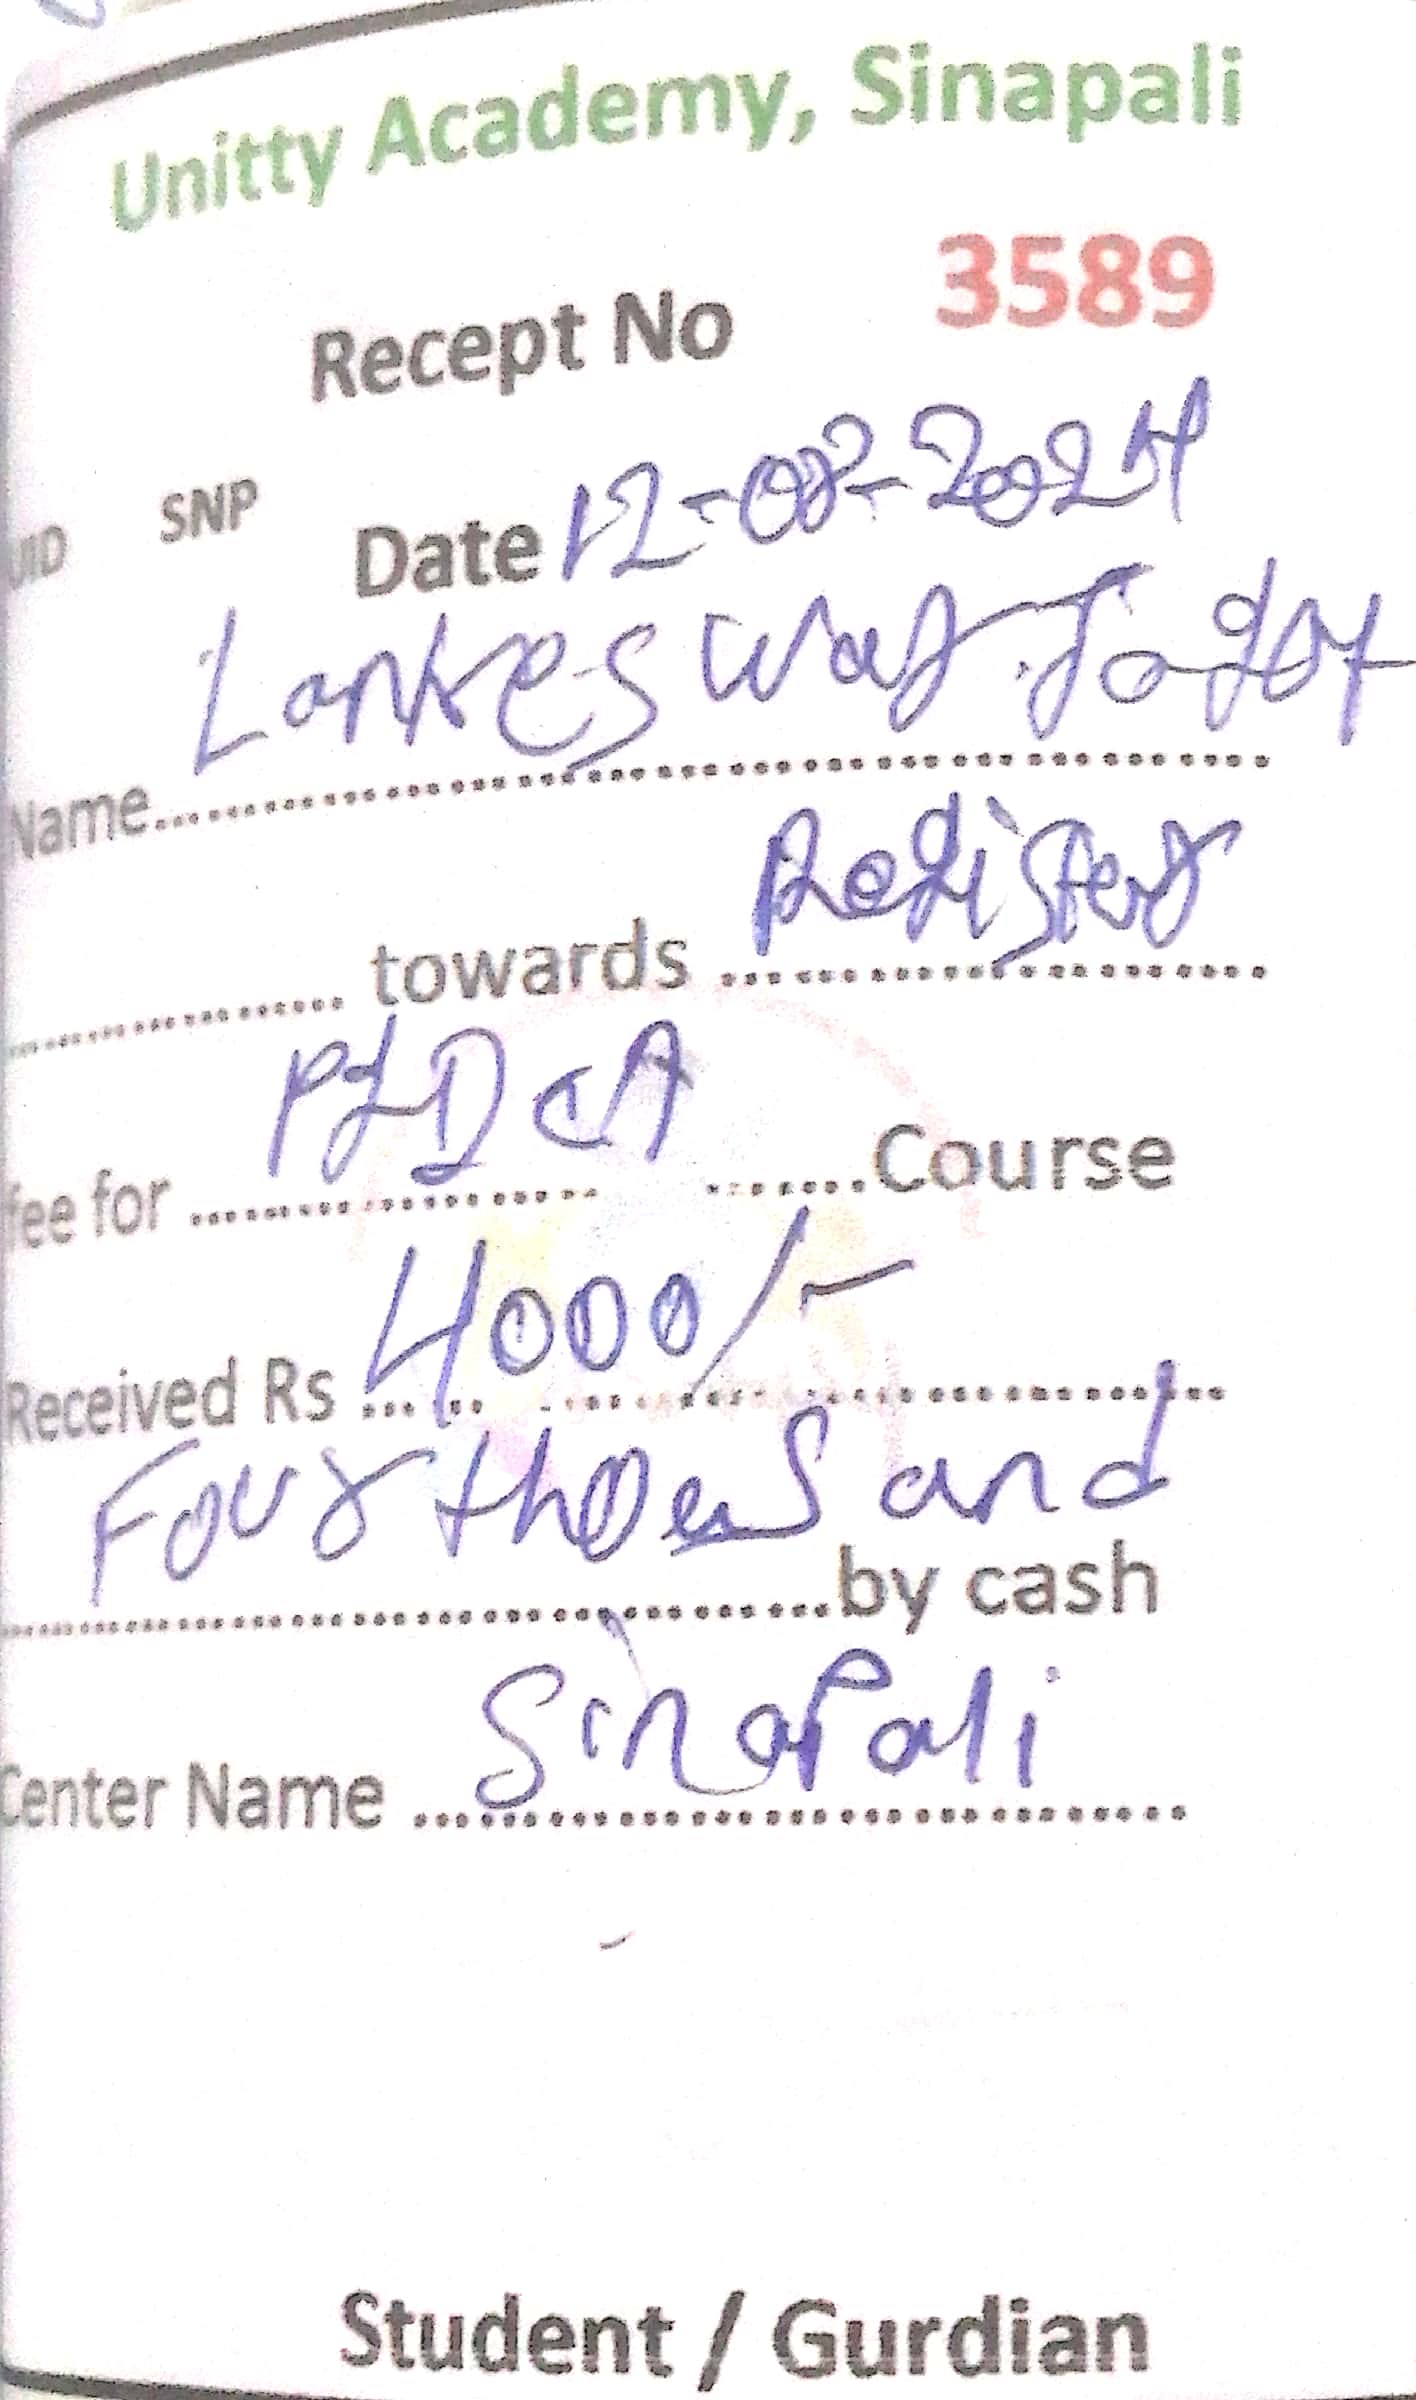 Unitty Academy, Sinapali
Recept No 3589
UID SNP Date 12-08-2024
Name Lankeswar
towards Register
fee for PGDCA Course
Received Rs 4000/-
Four thousand
by cash
Center Name Sinapali
Student / Gurdian